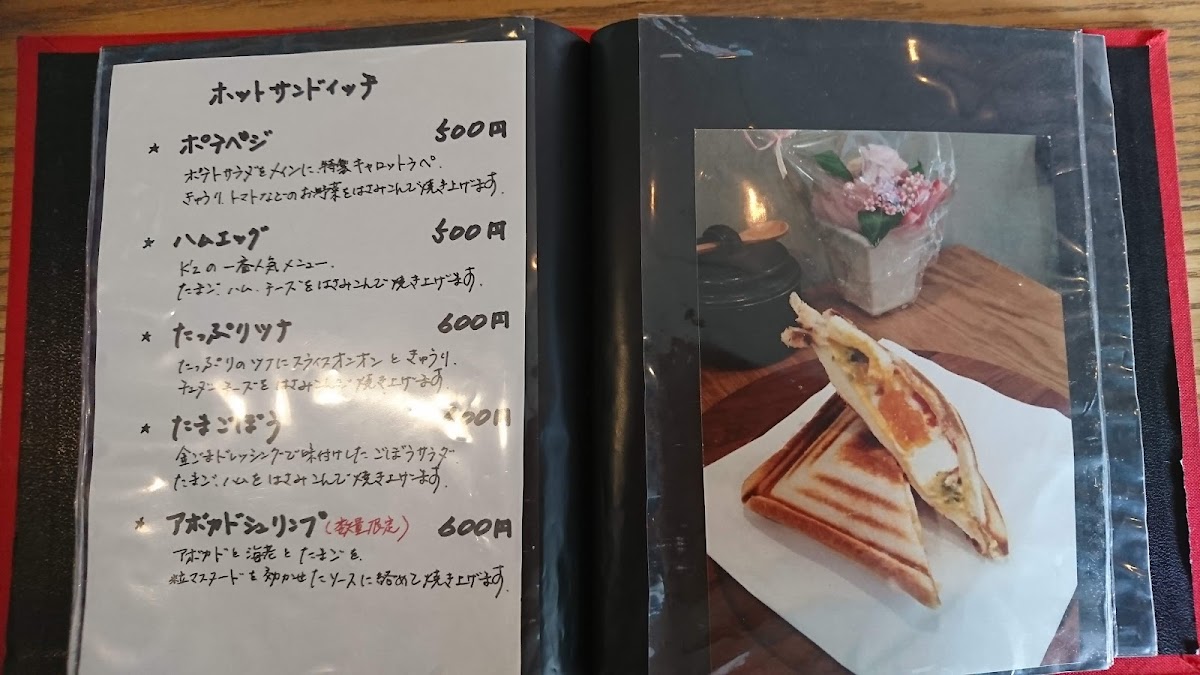 ホットサンドイッチ
★ ポテベジ 500円
ポテトサラダをメインに、特製キャロットラペ、
きゅうり、トマトなどのお野菜をはさみこんで焼き上げます。
★ ハムエッグ 500円
K'zの一番人気メニュー。
たまご、ハム、チーズをはさみこんで焼き上げます。
★ たっぷりツナ 600円
たっぷりのツナにスライスオニオンときゅうり、
チェダーチーズをはさみこんで焼き上げます。
★ たまごぼう 00円
金ごまドレッシングで味付けしたごぼうサラダ、
たまご、ハムをはさみこんで焼き上げます。
★ アボカドシュリンプ(数量限定) 600円
アボカドと海老とたまごを、
粒マスタードを効かせたソースに絡めて焼き上げます。